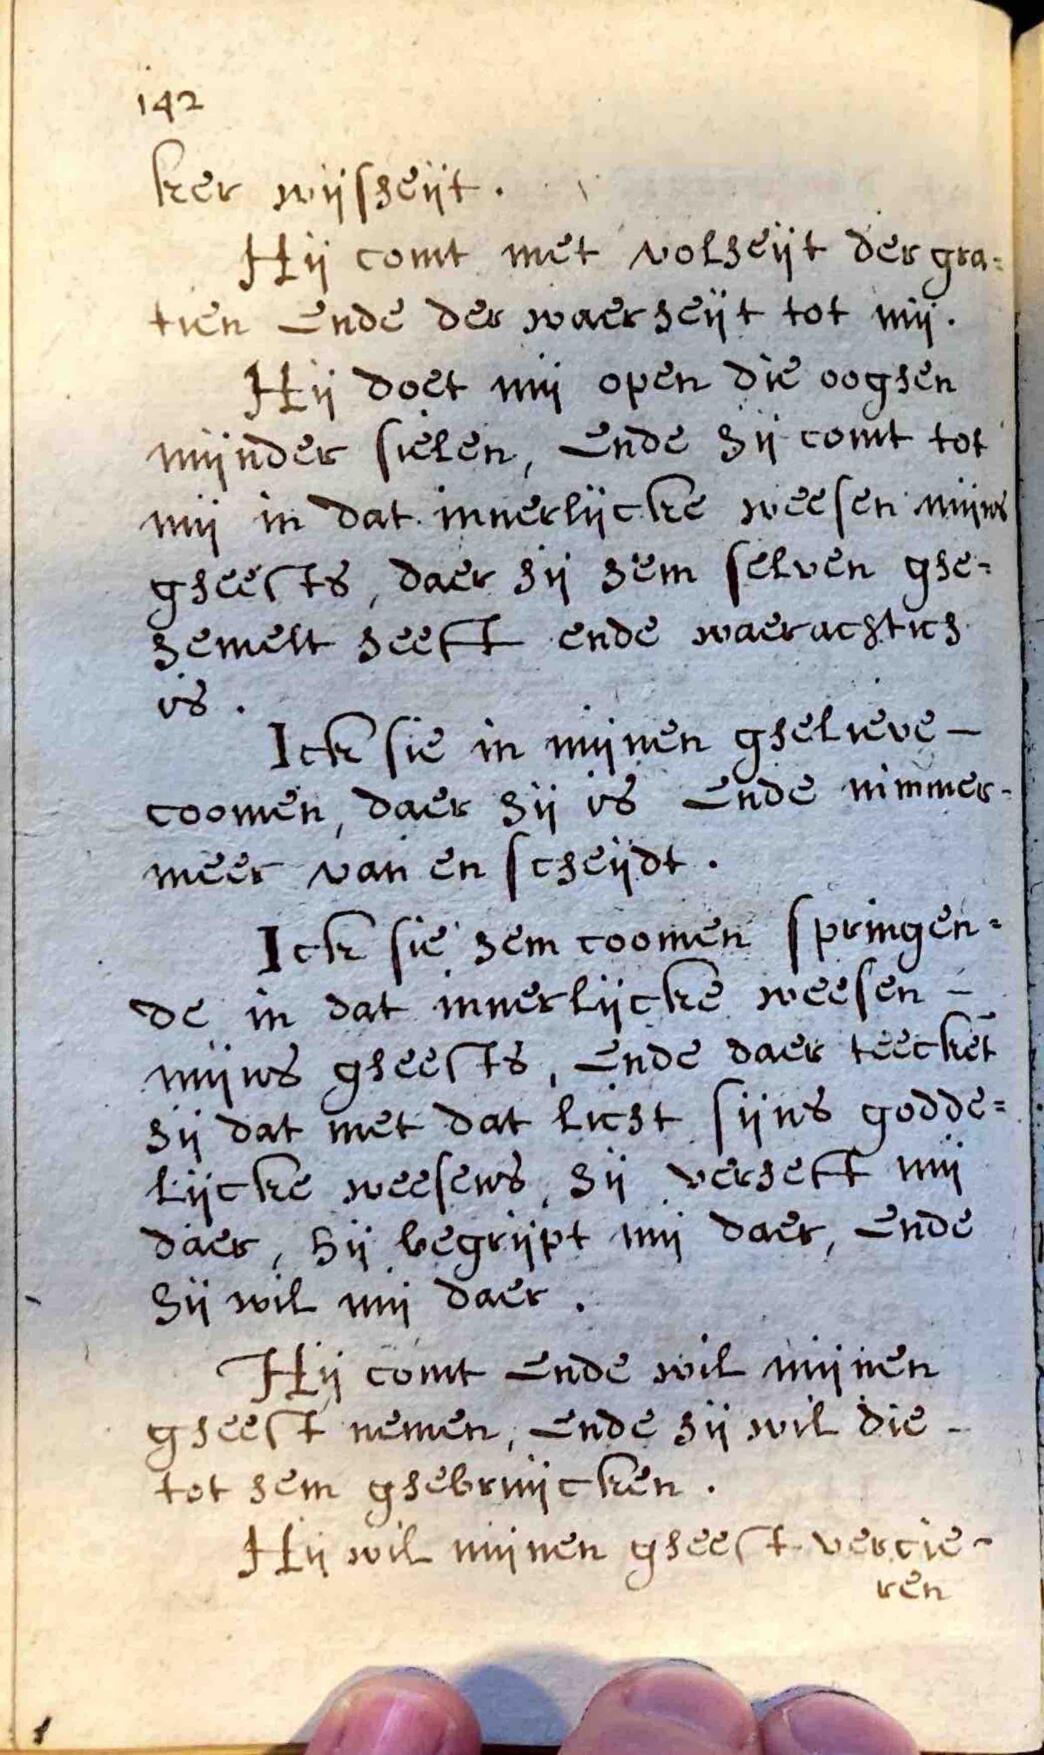 142
ker wijsheijt.
Hij comt met volheijt der gra=
tien Ende der waerheijt tot mij.
Hij doet mij open die ooghen
mijnder sielen, Ende hij comt tot
mij in dat innerlijcke weesen mijns
gheests, daer hij hem selven ghe=
hemelt heeft ende waerachtich
is.
Ick sie in mijnen ghelieve-
coomen, daer hij is Ende nimmer-
meer van en scheijdt.
Ick sie hem coomen springen=
de in dat innerlijcke weesen -
mijns gheests, Ende daer teecket
hij dat met dat licht sijns godde=
lijcke weesens, hij verheft mij
daer, hij begrijpt mij daer, Ende
hij wil mij daer.
Hij comt Ende wil mijnen
gheest nemen, Ende hij wil die -
tot hem ghebruijcken.
Hij wil mijnen gheest vercie-
ren